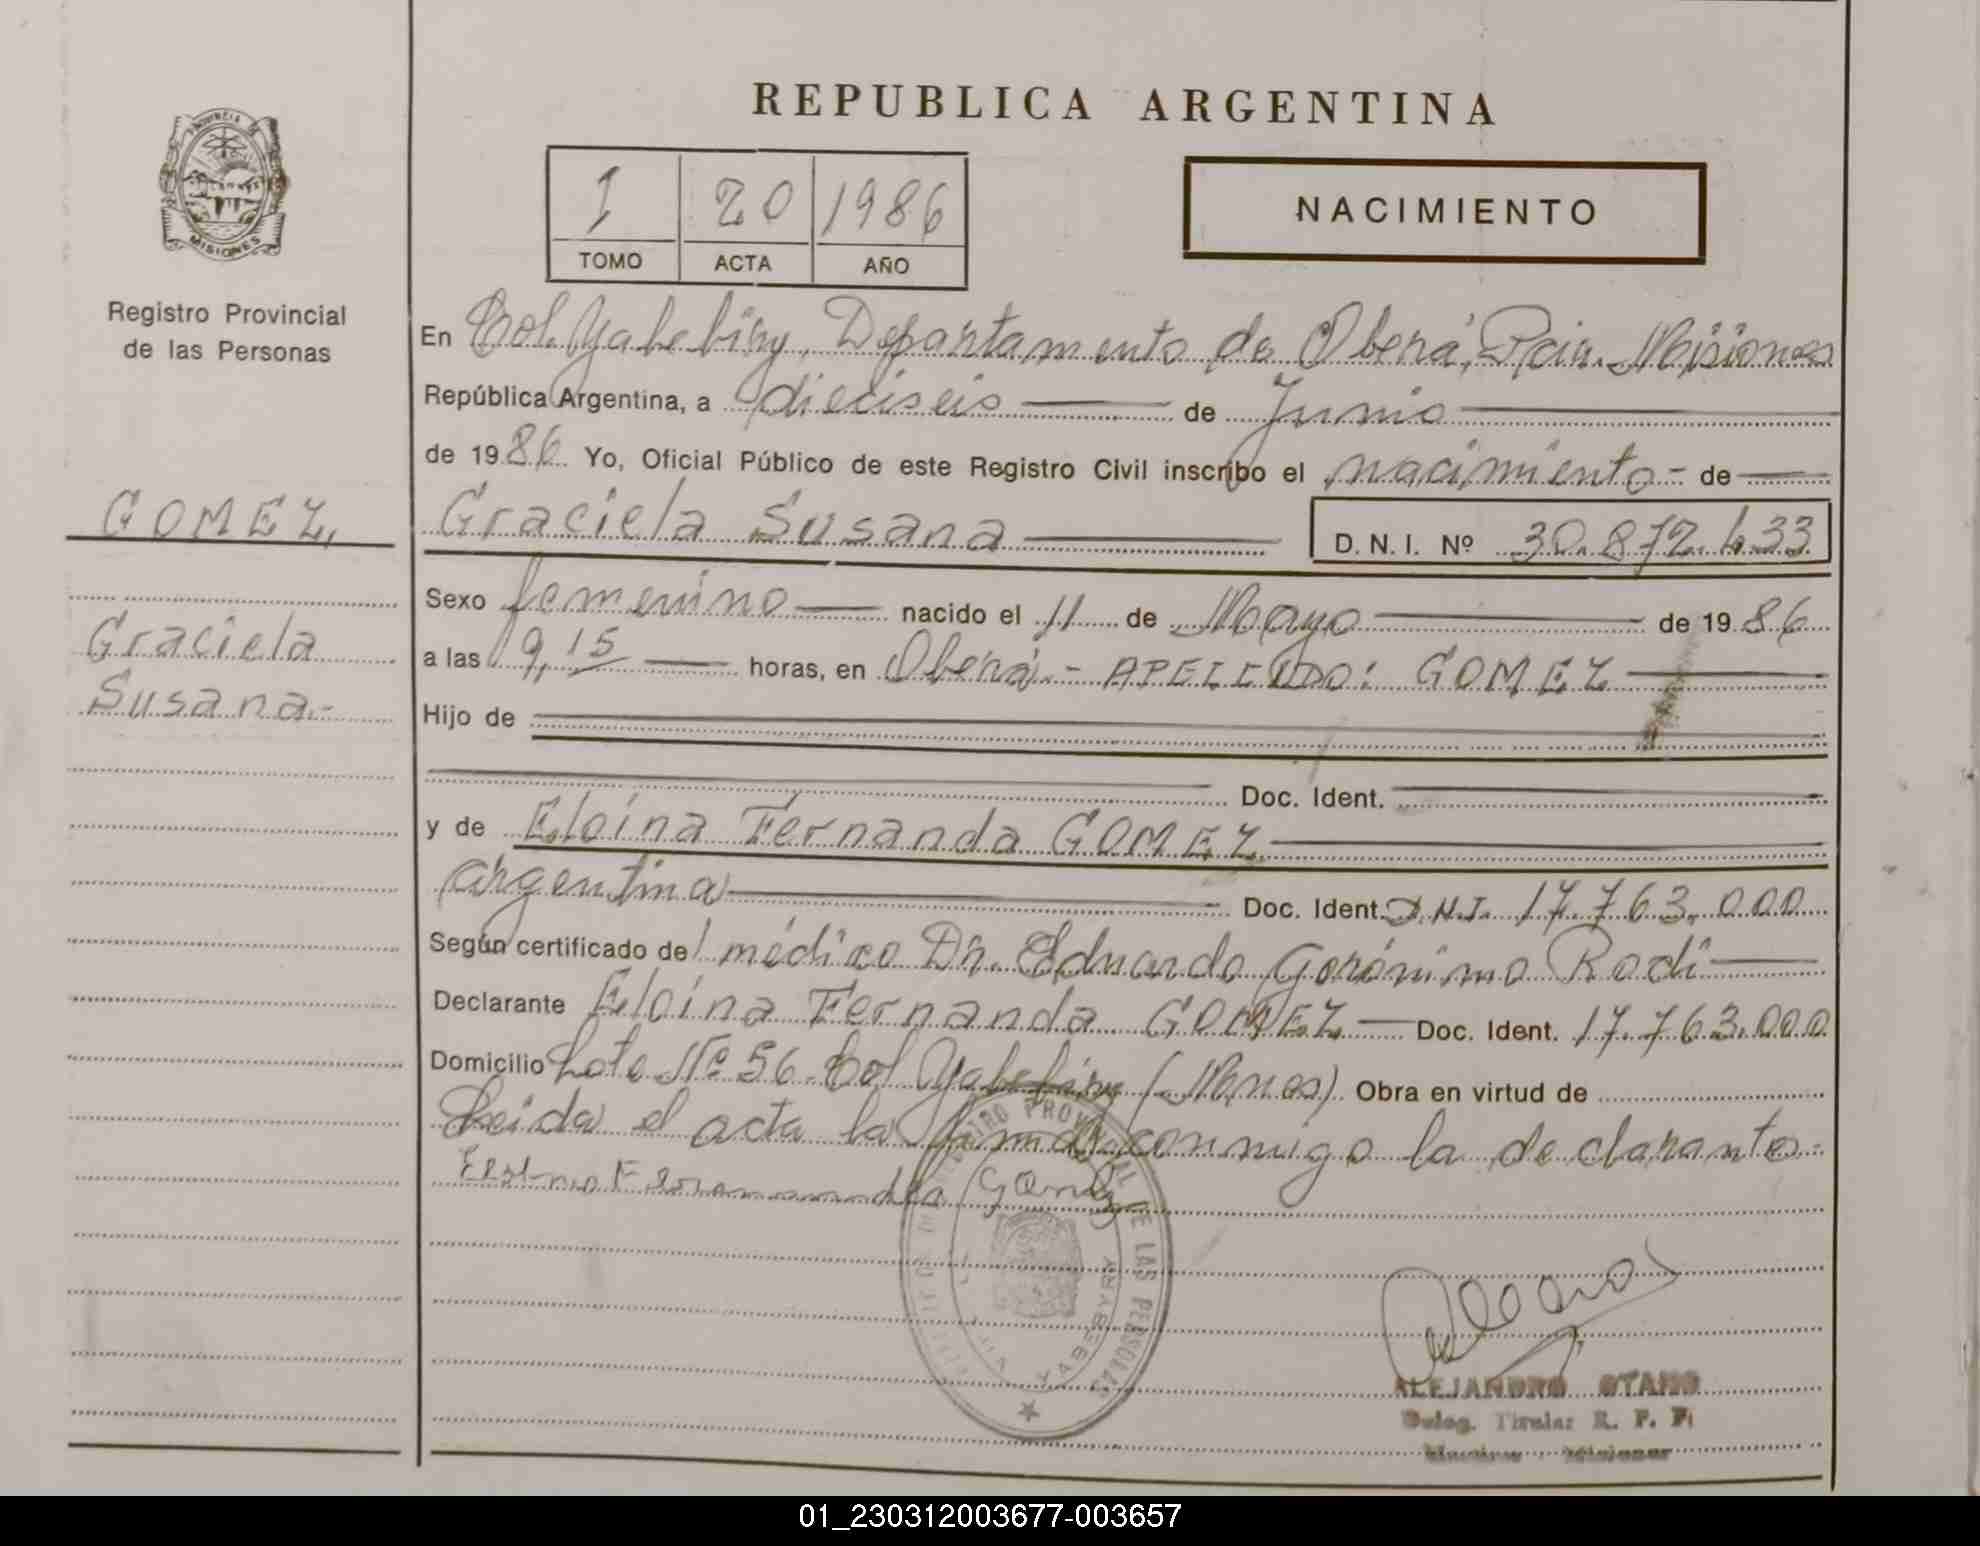 REPUBLICA ARGENTINA
PROVINCIA DE
MISIONES
Registro Provincial
de las Personas
1 20 1986
TOMO ACTA AÑO
NACIMIENTO
En Col. Yabebiry, Departamento de Oberá, Pcia. Misiones
República Argentina, a dieciseis de Junio
de 1986 Yo, Oficial Público de este Registro Civil inscribo el nacimiento - de
GOMEZ,
Graciela Susana D.N.I. Nº 30.872.433
Sexo femenino nacido el 11 de Mayo de 1986
Graciela
a las 9,15 horas, en Oberá.- APELLIDO: GOMEZ
Susana.-
Hijo de
Doc. Ident.
y de Eloína Fernanda GOMEZ
argentina Doc. Ident. D.N.I. 17.763.000
Según certificado del médico Dr. Eduardo Gerónimo Rodi
Declarante Eloína Fernanda GOMEZ Doc. Ident. 17.763.000
Domicilio Lote Nº 56 - Col Yabebiry (Mnes). Obra en virtud de
Leida el acta la firma conmigo la declarante.-
REGISTRO PROVINCIAL DE LAS PERSONAS
YABEBIRY
ALEJANDRO OTAÑO
Deleg. Titular R. P. P.
Misiones
01_230312003677-003657